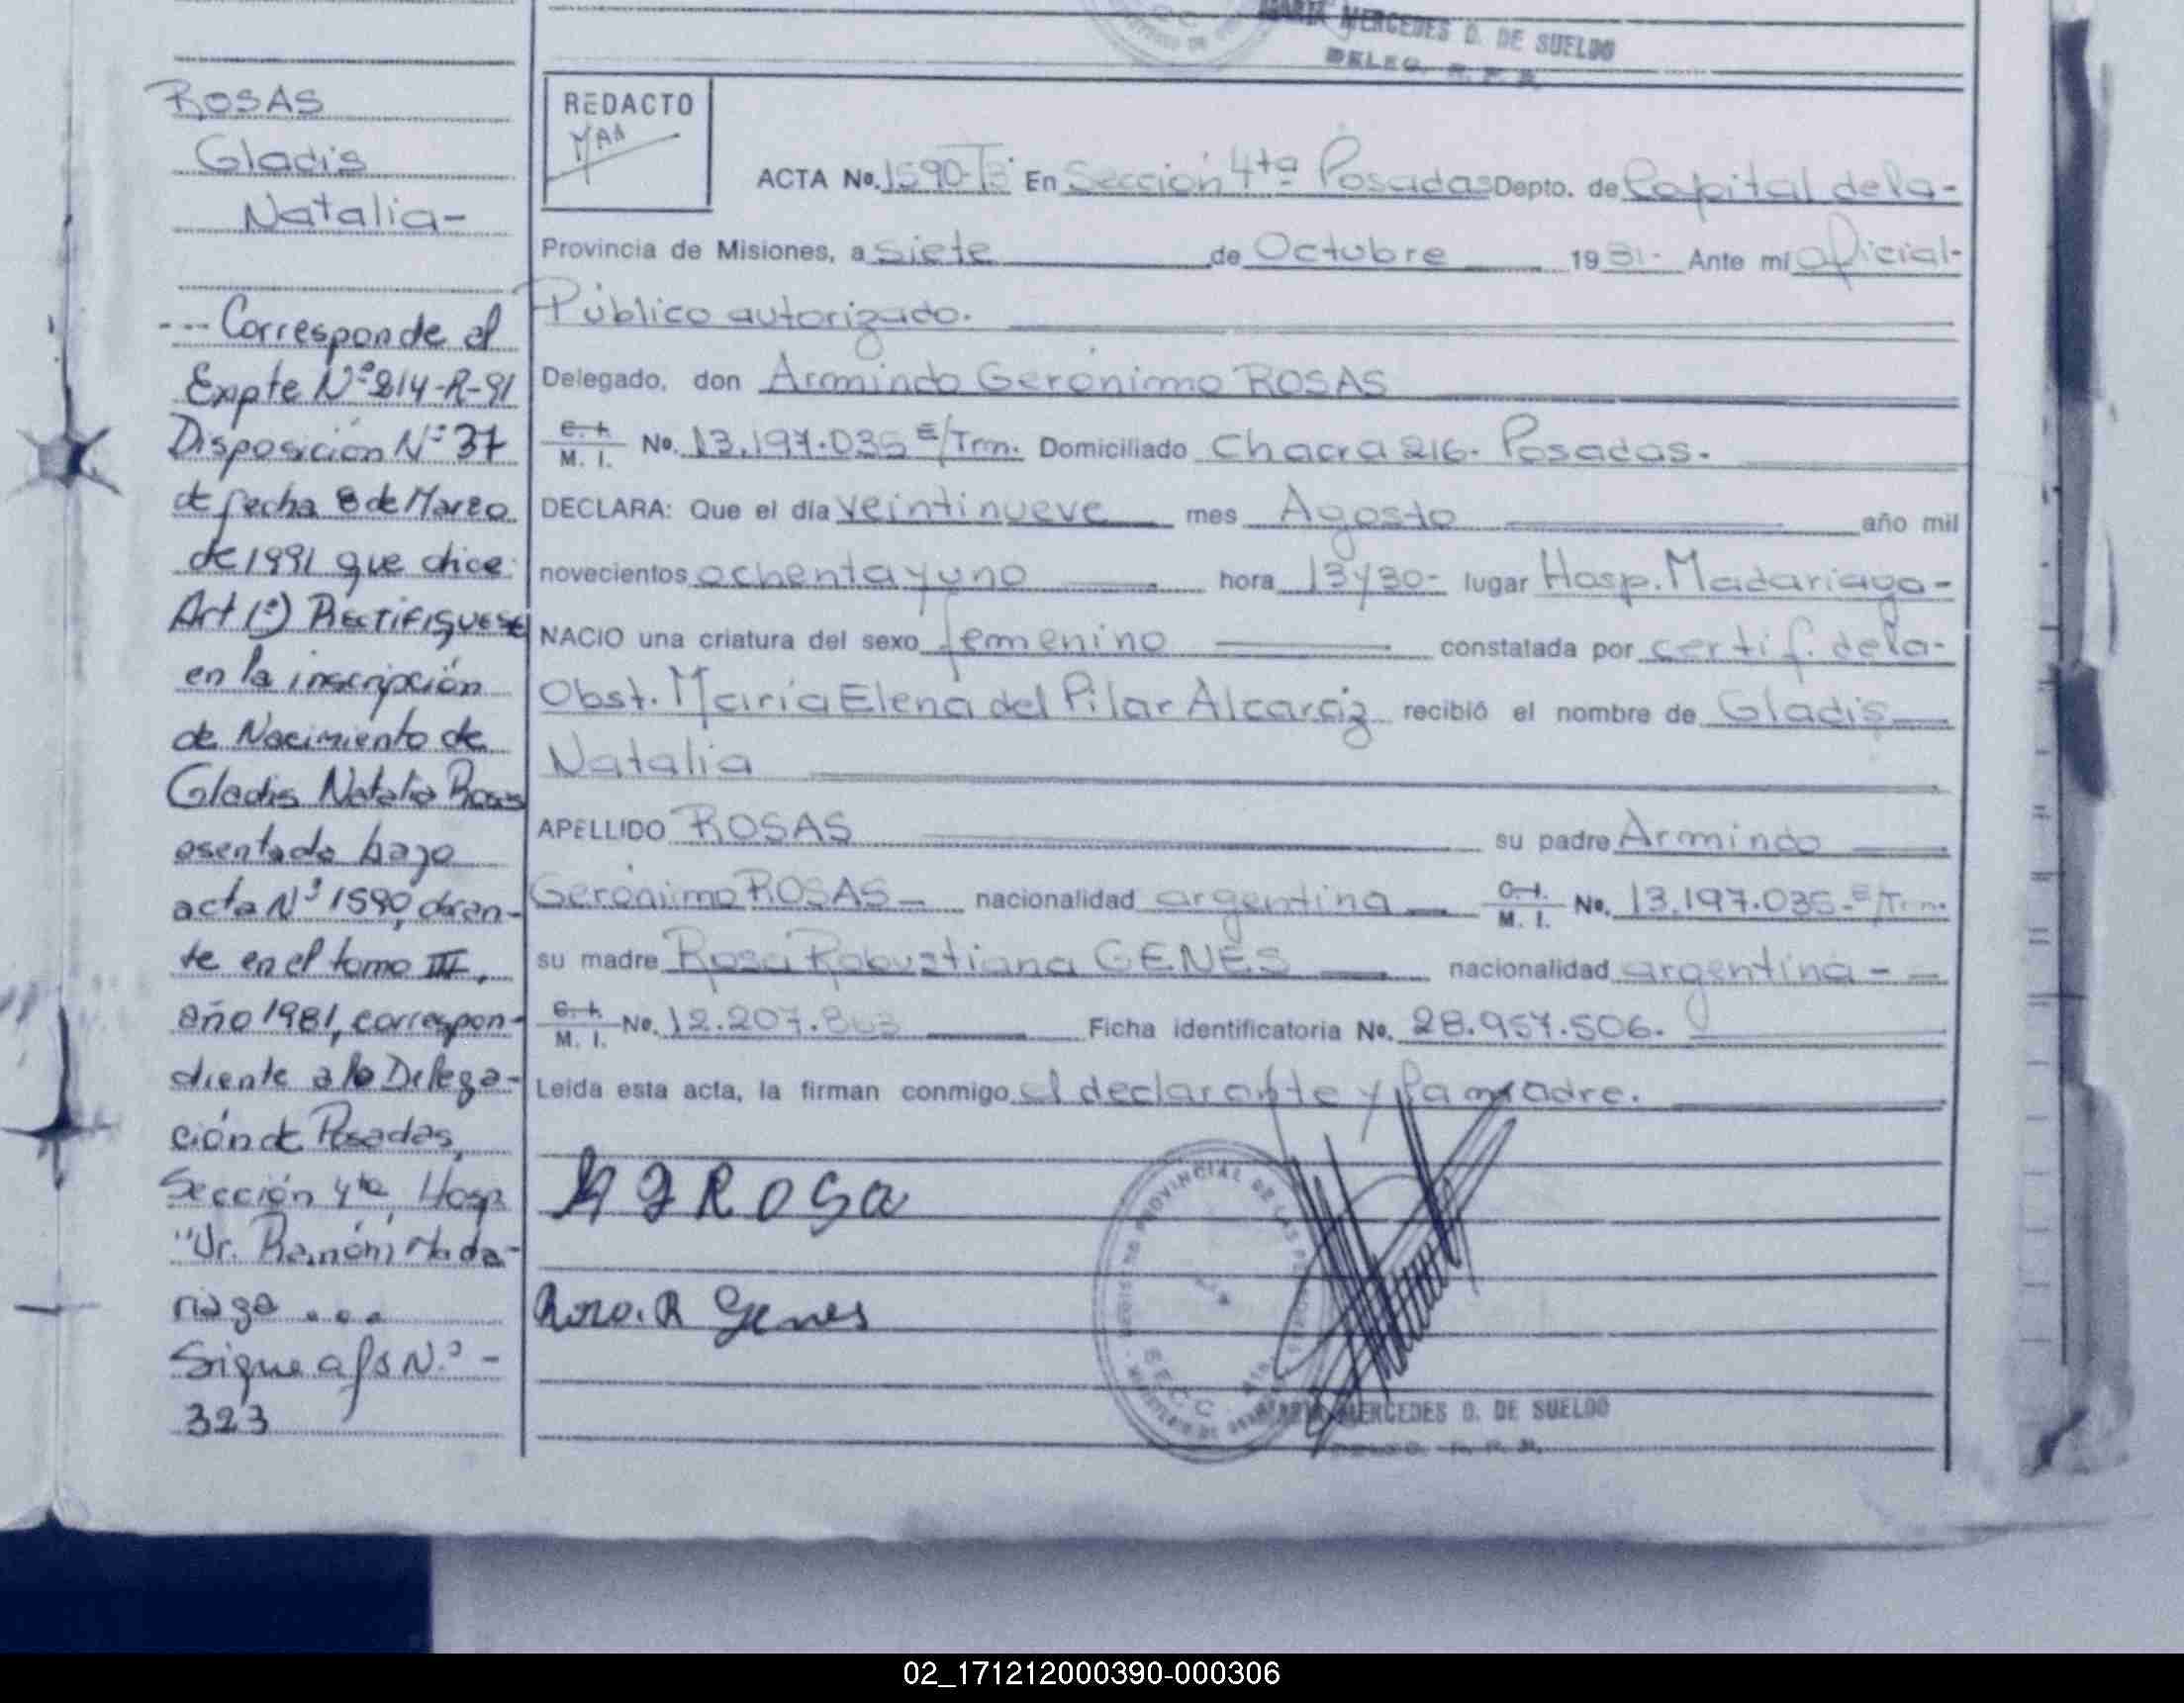 MARIA MERCEDES D. DE SUELDO
DELEG. R. P. R.
ROSAS
Gladis
Natalia-
--- Corresponde al
Expte Nº 214-R-91
Disposición Nº 37
de fecha 8 de Marzo
de 1991 que dice:
Art 1º) RECTIFIQUESE
en la inscripción
de Nacimiento de
Gladis Natalia Rosas
asentada bajo
acta Nº 1590, obran-
te en el tomo III,
año 1981, correspon-
diente a la Delega-
ción de Posadas,
Sección 4ta, Hosp.
"Dr. Ramón Mada-
riaga...
Sigue a fs N.º -
323
REDACTO
ACTA No. 1590-Tº3 En Sección 4ta Posadas Depto. de Capital de la-
Provincia de Misiones, a siete de Octubre 1981- Ante mí Oficial-
Público autorizado.
Delegado, don Armindo Gerónimo ROSAS
C. I. / M. I. No. 13.197.035 E/Trm. Domiciliado Chacra 216. Posadas.
DECLARA: Que el día veintinueve mes Agosto año mil
novecientos ochenta y uno hora 13y30- lugar Hosp. Madariaga-
NACIO una criatura del sexo femenino constatada por certif. de la-
Obst. María Elena del Pilar Alcaráz recibió el nombre de Gladis
Natalia
APELLIDO ROSAS su padre Armindo
Gerónimo ROSAS nacionalidad argentina C. I. / M. I. No. 13.197.035-E/Trm.
su madre Rosa Robustiana GENES nacionalidad argentina-
C. I. / M. I. No. 12.207. Ficha identificatoria No. 28.957.506.
Leída esta acta, la firman conmigo el declarante y la madre.
A G ROSA
Rosa. R Genes
MARIA MERCEDES D. DE SUELDO
DELEG. R. P. R.
02_171212000390-000306